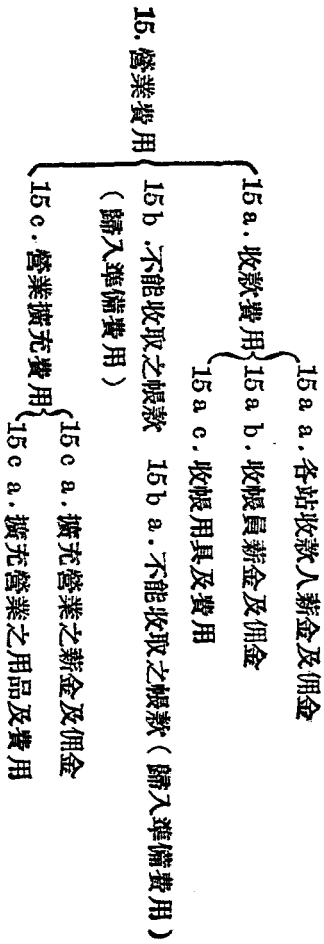 15.營業費用
15a.收款費用
15a a.各站收款人薪金及佣金
15a b.收帳員薪金及佣金
15a c.收帳用具及費用
15b.不能收取之帳款
(歸入準備費用)
15b a.不能收取之帳款(歸入準備費用)
15c.營業擴充費用
15c a.擴充營業之薪金及佣金
15c a.擴充營業之用品及費用